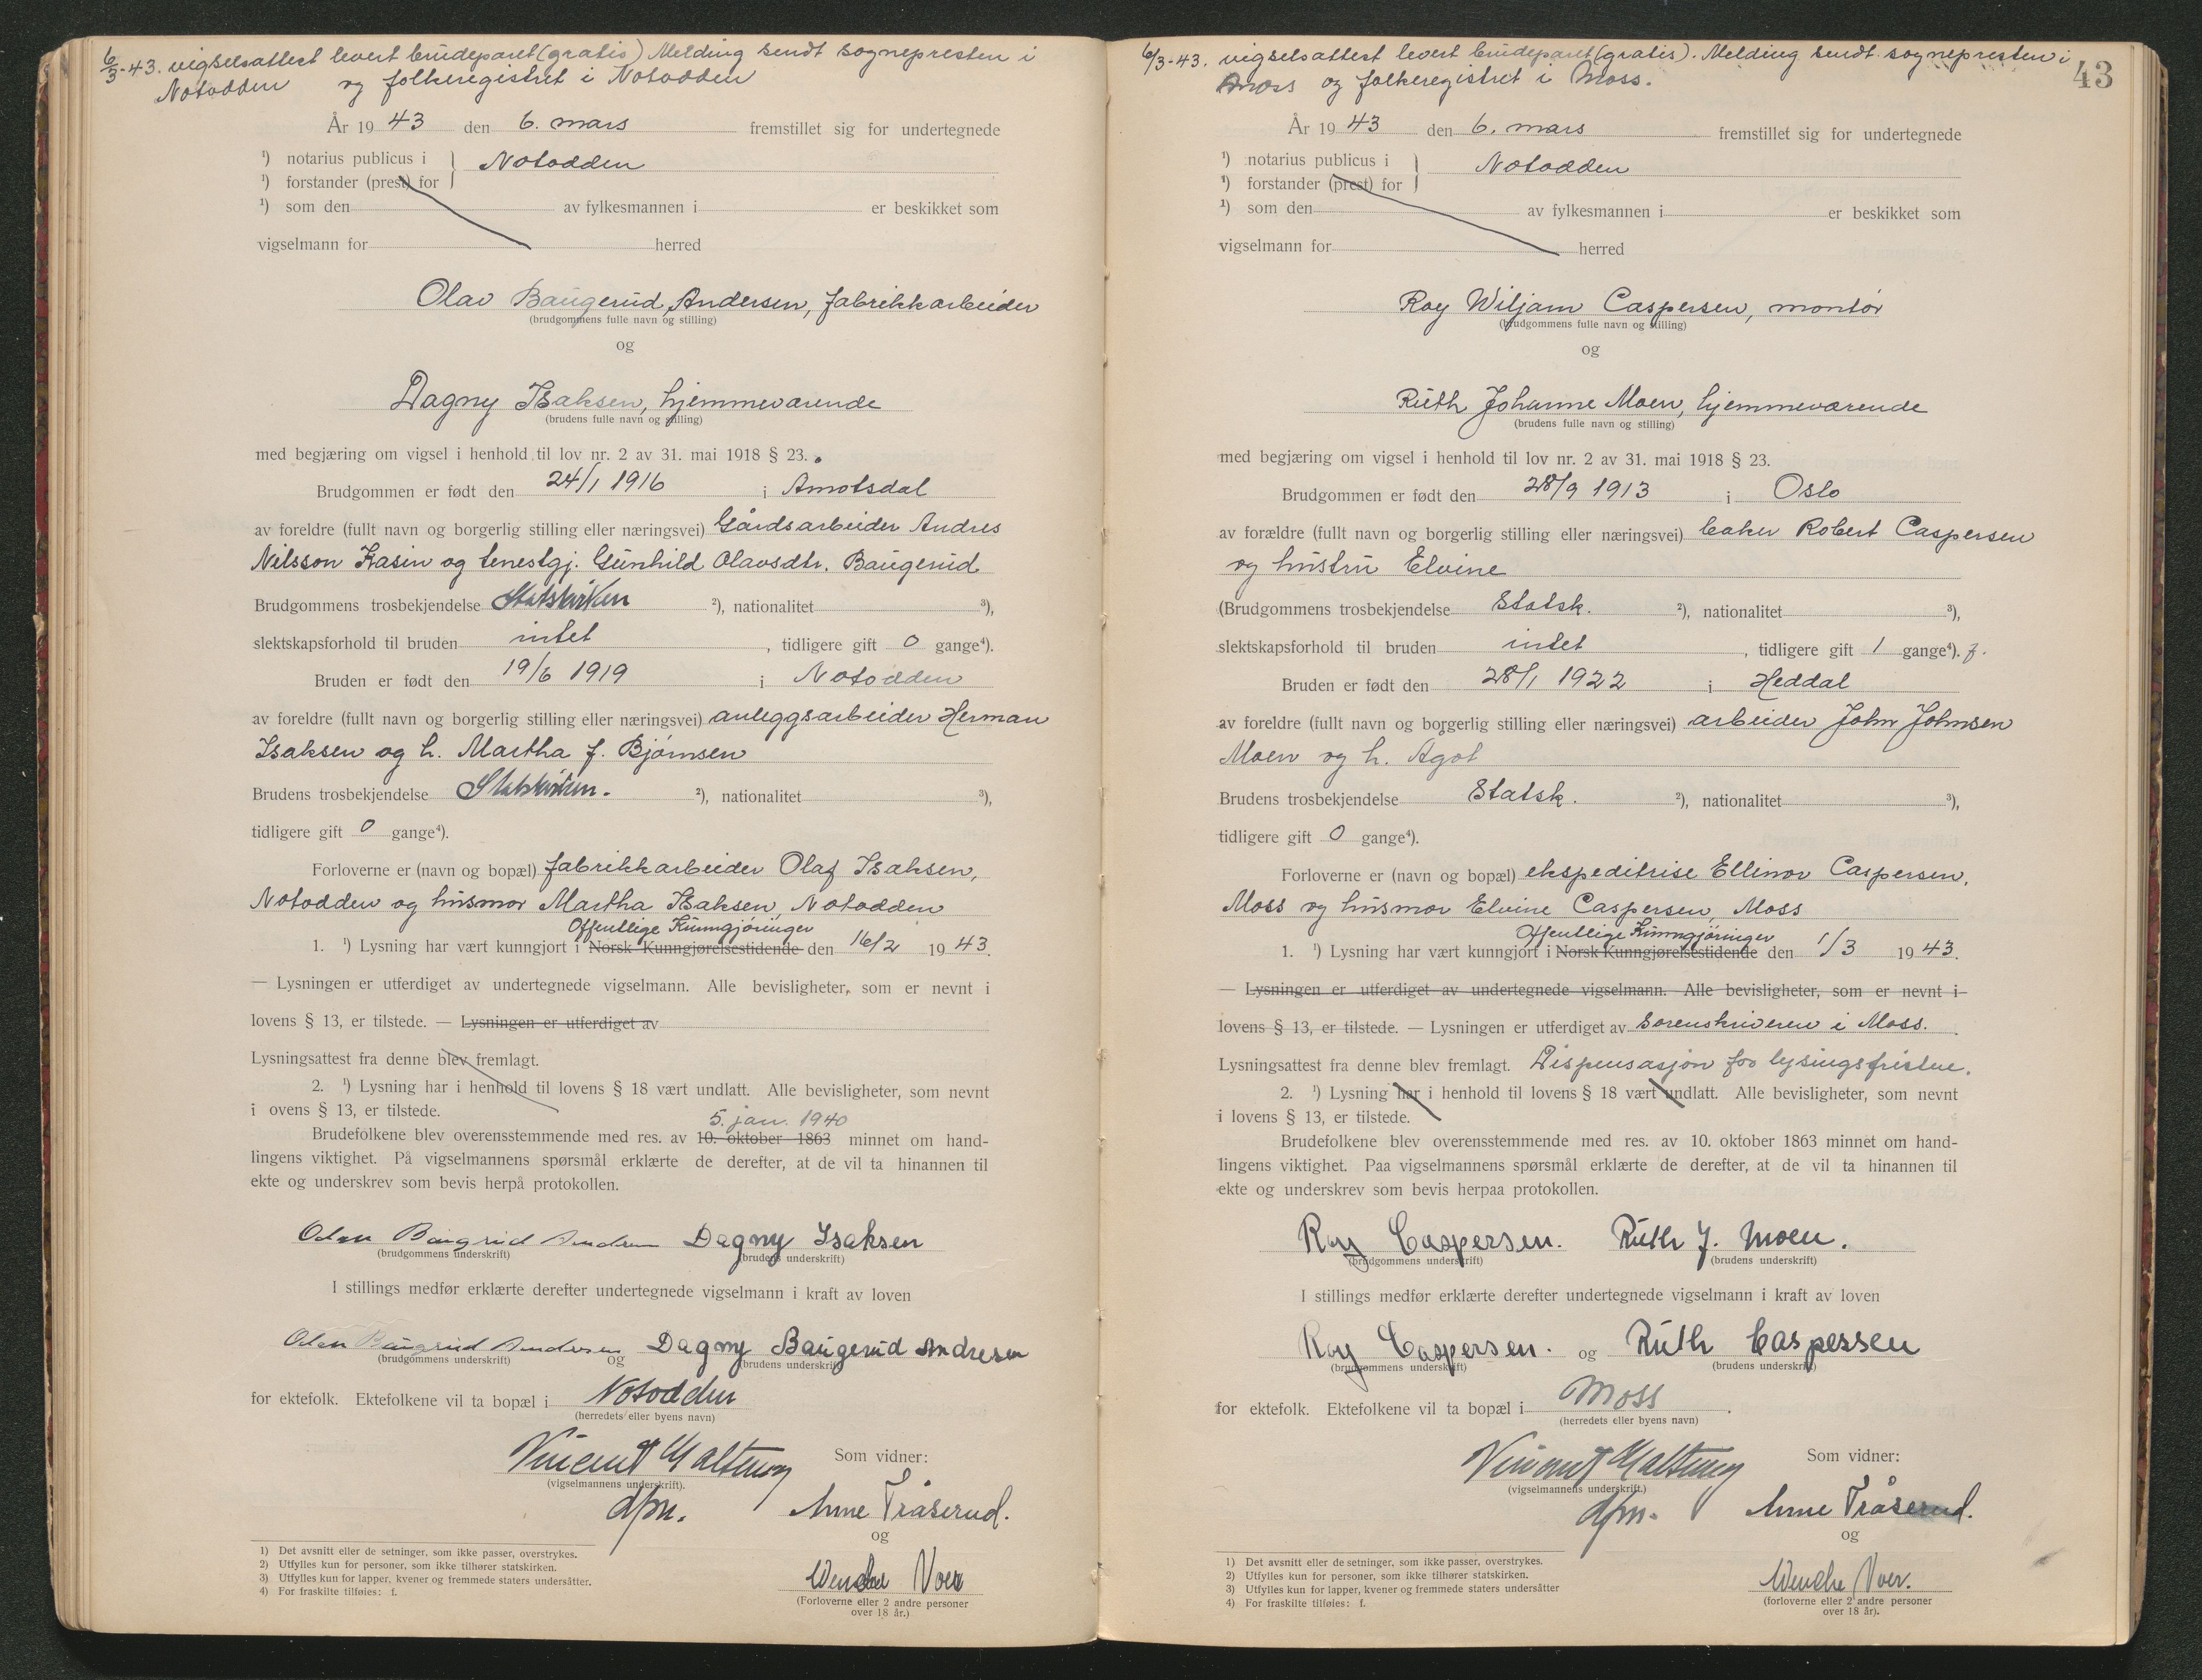 6/3-43. vigselsattest levert brudeparet (gratis) Melding sendt sognepresten i
Notodden og folkeregistret i Notodden
År 19 43 den 6. mars fremstillet sig for undertegnede
¹) notarius publicus i } Notodden
¹) forstander (prest) for
¹) som den av fylkesmannen i er beskikket som
vigselmann for herred
Olav Baugerud Andersen, fabrikkarbeider
(brudgommens fulle navn og stilling)
og
Dagny Isaksen, hjemmeværende
(brudens fulle navn og stilling)
med begjæring om vigsel i henhold til lov nr. 2 av 31. mai 1918 § 23.
Brudgommen er født den 24/1 1916 i Åmotsdal
av foreldre (fullt navn og borgerlig stilling eller næringsvei) Gårdsarbeider Andres
Nilsson Kasin og tenestgj. Gunhild Olavsdtr. Baugerud
Brudgommens trosbekjendelse Statskirken ²), nationalitet ³),
slektskapsforhold til bruden intet , tidligere gift 0 gange⁴).
Bruden er født den 19/6 1919 i Notodden
av foreldre (fullt navn og borgerlig stilling eller næringsvei) anleggsarbeider Herman
Isaksen og h. Martha f. Bjørnsen
Brudens trosbekjendelse Statskirken. ²), nationalitet ³),
tidligere gift 0 gange⁴).
Forloverne er (navn og bopæl) fabrikkarbeider Olaf Isaksen,
Notodden og husmor Martha Isaksen, Notodden
Offentlige Kunngjøringer
1. ¹) Lysning har vært kunngjort i Norsk Kunngjørelsestidende den 16/2 19 43.
— Lysningen er utferdiget av undertegnede vigselmann. Alle bevisligheter, som er nevnt i
lovens § 13, er tilstede. — Lysningen er utferdiget av
Lysningsattest fra denne blev fremlagt.
2. ¹) Lysning har i henhold til lovens § 18 vært undlatt. Alle bevisligheter, som nevnt
i ovens § 13, er tilstede.
5. jan. 1940
Brudefolkene blev overensstemmende med res. av 10. oktober 1863 minnet om hand-
lingens viktighet. På vigselmannens spørsmål erklærte de derefter, at de vil ta hinannen til
ekte og underskrev som bevis herpå protokollen.
Olav Baugrud Andersen Dagny Isaksen
(brudgommens underskrift) (brudens underskrift)
I stillings medfør erklærte derefter undertegnede vigselmann i kraft av loven
Olav Baugrud Andersen og Dagny Baugerud Andresen
(brudgommens underskrift) (brudens underskrift)
for ektefolk. Ektefolkene vil ta bopæl i Notodden
(herredets eller byens navn)
Vincent Galtung Som vidner:
(vigselmannens underskrift).
dfm. Anne Tråserud.
og
Wenche Voer
(Forloverne eller 2 andre personer
over 18 år.)
1) Det avsnitt eller de setninger, som ikke passer, overstrykes.
2) Utfylles kun for personer, som ikke tilhører statskirken.
3) Utfylles kun for lapper, kvener og fremmede staters undersåtter.
4) For fraskilte tilføies: f.
6/3-43. vigselsattest levert brudeparet (gratis). Melding sendt sognepresten i
Moss og folkeregistret i Moss.
43
År 19 43 den 6. mars fremstillet sig for undertegnede
¹) notarius publicus i } Notodden
¹) forstander (prest) for
¹) som den av fylkesmannen i er beskikket som
vigselmann for herred
Roy Wiljam Caspersen, montør
(brudgommens fulle navn og stilling)
og
Ruth Johanne Moen, hjemmeværende
(brudens fulle navn og stilling)
med begjæring om vigsel i henhold til lov nr. 2 av 31. mai 1918 § 23.
Brudgommen er født den 28/9 1913 i Oslo
av forældre (fullt navn og borgerlig stilling eller næringsvei) baker Robert Caspersen
og hustru Elvine
(Brudgommens trosbekjendelse Statsk. ²), nationalitet ³),
slektskapsforhold til bruden intet , tidligere gift 1 gange⁴). f.
Bruden er født den 28/1 1922 i Heddal
av foreldre (fullt navn og borgerlig stilling eller næringsvei) arbeider John Johnsen
Moen og h. Ågot
Brudens trosbekjendelse Statsk. ²), nationalitet ³),
tidligere gift 0 gange⁴).
Forloverne er (navn og bopæl) ekspeditrise Ellinor Caspersen,
Moss og husmor Elvine Caspersen, Moss
Offentlige Kunngjøringer
1. ¹) Lysning har vært kunngjort i Norsk Kunngjørelsestidende den 1/3 19 43.
— Lysningen er utferdiget av undertegnede vigselmann. Alle bevisligheter, som er nevnt i
lovens § 13, er tilstede. — Lysningen er utferdiget av Sorenskriveren i Moss.
Lysningsattest fra denne blev fremlagt. Dispensasjon for lysingsfristen.
2. ¹) Lysning har i henhold til lovens § 18 vært undlatt. Alle bevisligheter, som nevnt
i lovens § 13, er tilstede.
Brudefolkene blev overensstemmende med res. av 10. oktober 1863 minnet om hand-
lingens viktighet. Paa vigselmannens spørsmål erklærte de derefter, at de vil ta hinannen til
ekte og underskrev som bevis herpaa protokollen.
Roy Caspersen. Ruth J. Moen.
(brudgommens underskrift) (brudens underskrift)
I stillings medfør erklærte derefter undertegnede vigselmann i kraft av loven
Roy Caspersen. og Ruth Caspessen
(brudgommens underskrift) (brudens underskrift)
for ektefolk. Ektefolkene vil ta bopæl i Moss.
(herredets eller byens navn)
Vincent Galtung Som vidner:
(vigselmannens underskrift.)
dfm. Anne Tråserud.
og
Wenche Voer.
(forloverne eller 2 andre personer
over 18 år).
1) Det avsnitt eller de setninger, som ikke passer, overstrykes.
2) Utfylles kun for personer, som ikke tilhører statskirken.
3) Utfylles kun for lapper, kvener og fremmede staters undersåtter
4) For fraskilte tilføies: f.